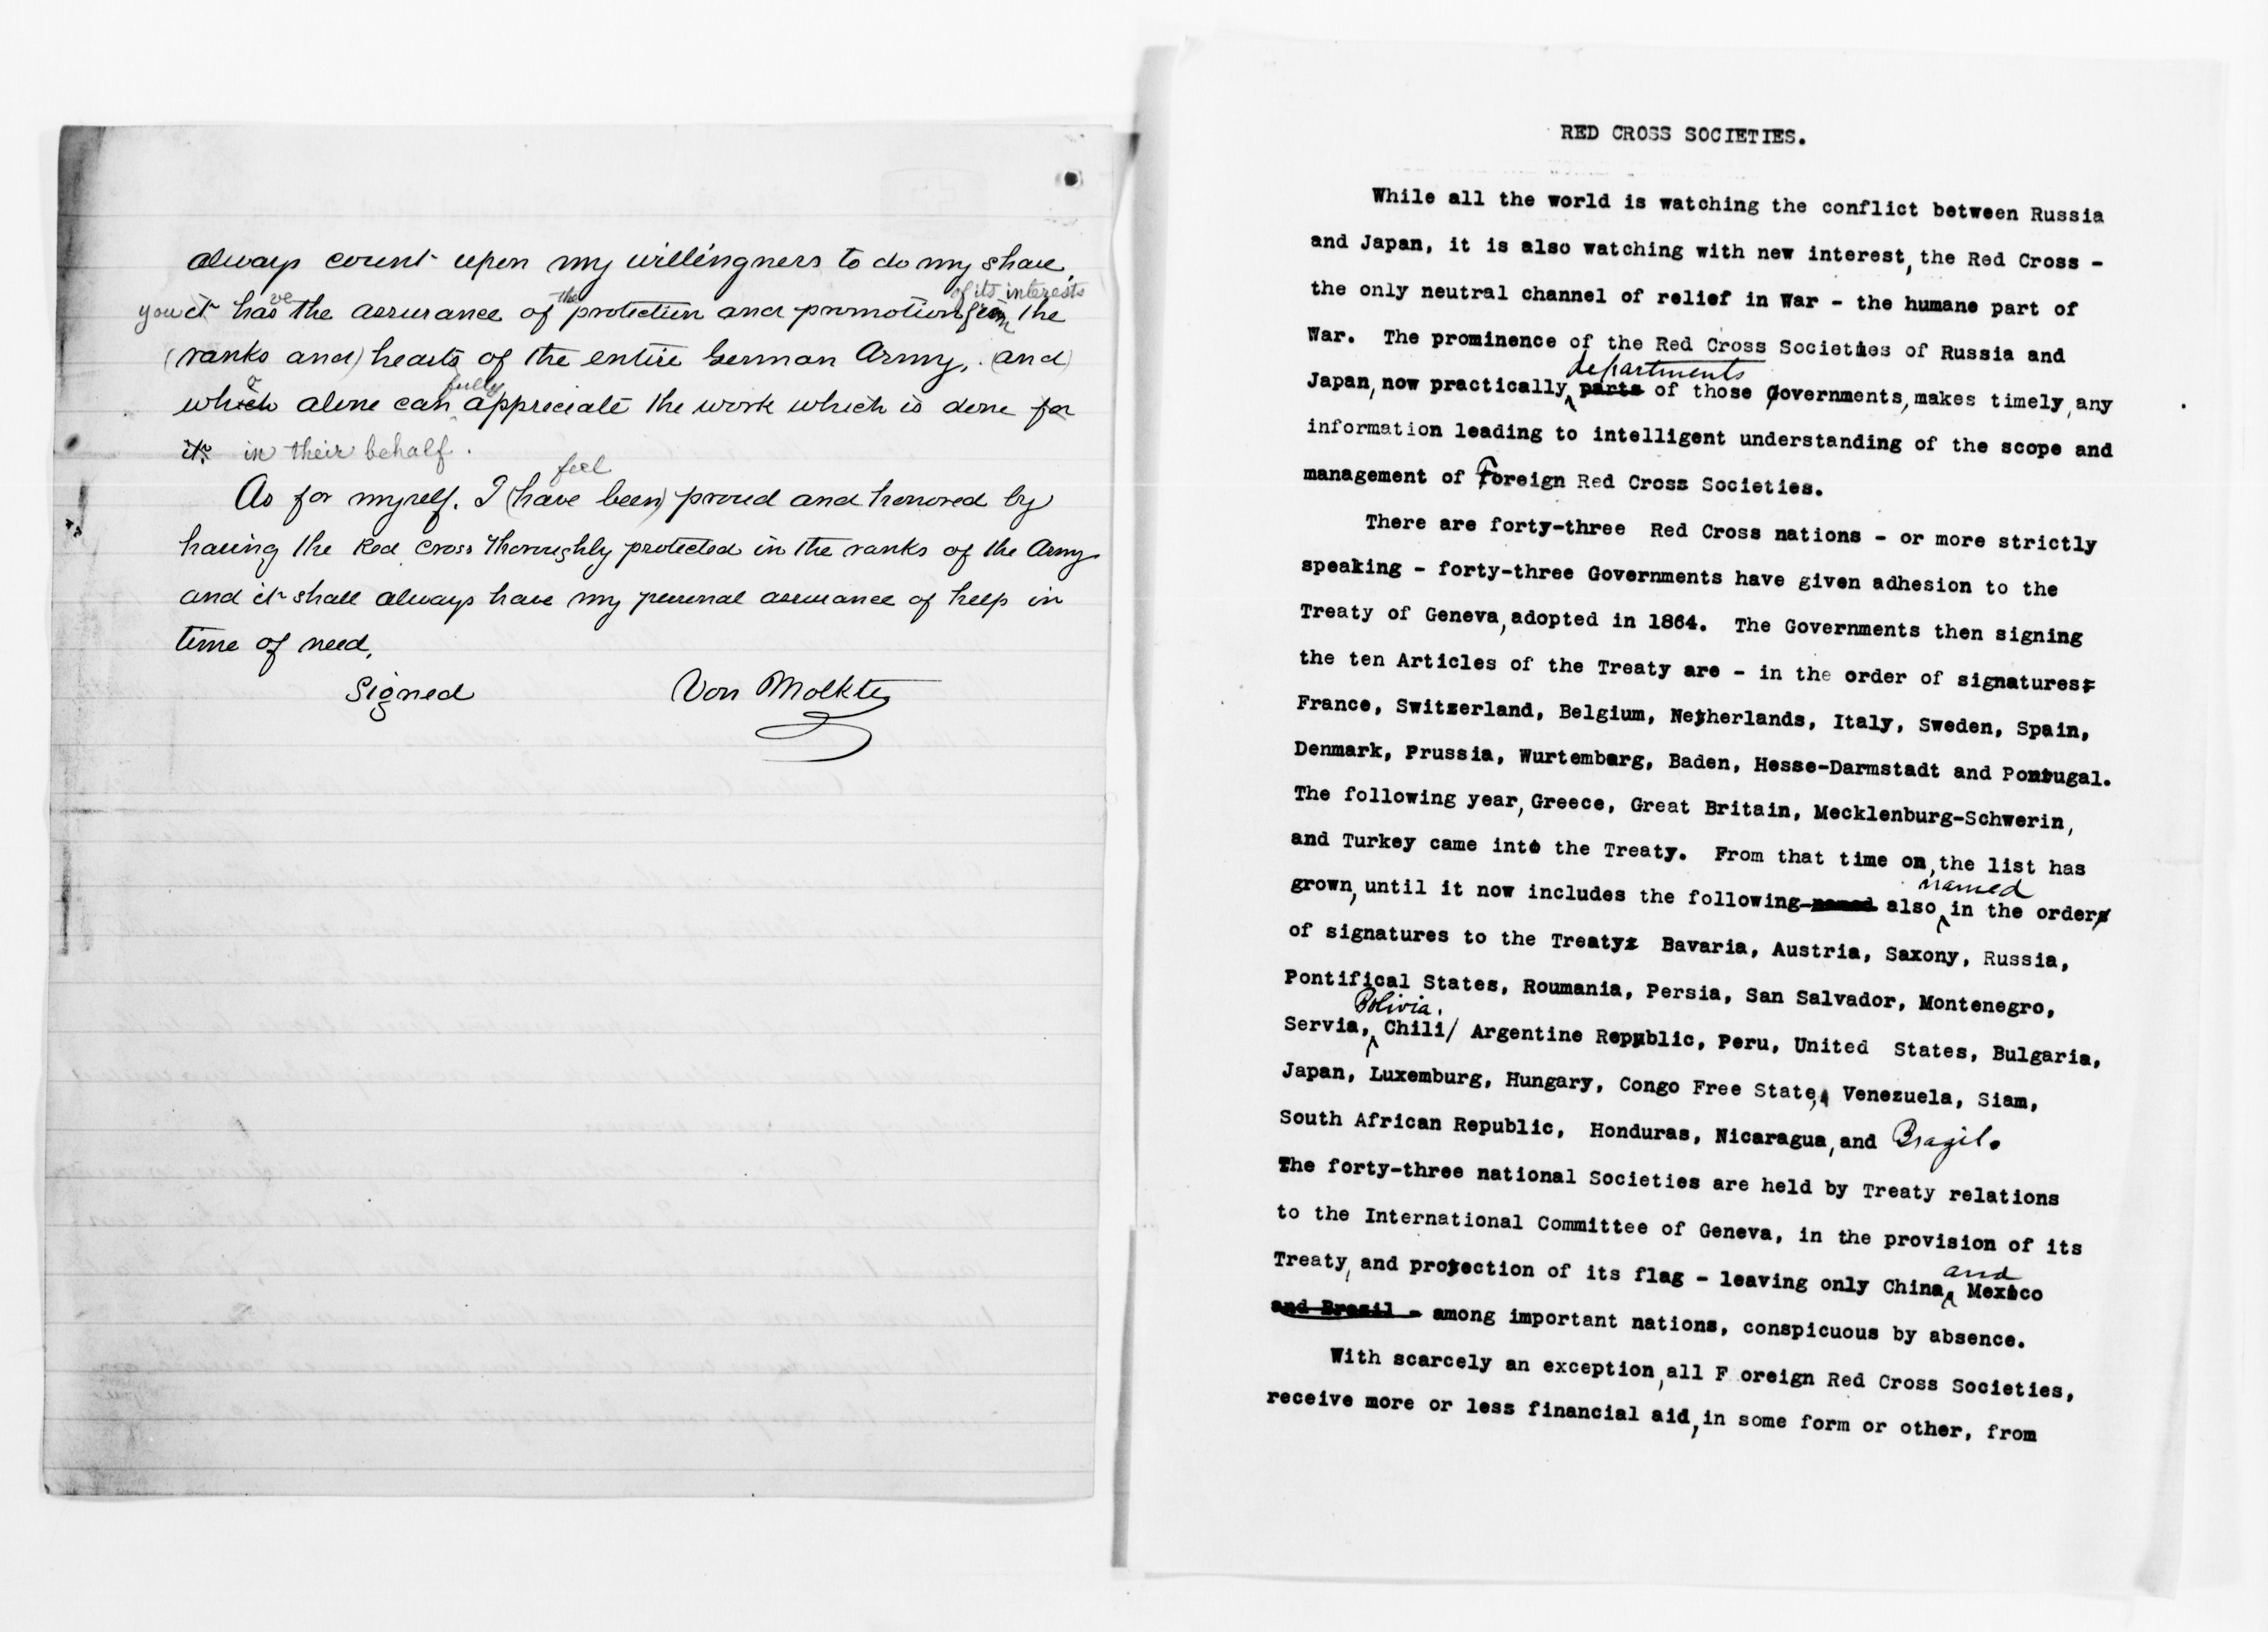 always count upon my willingness to do my share,
of its interests
the
ve
you it has the assurance of protection and promotion from the
(ranks and) hearts of the entire German Army, (and)
o
fully
which alone can appreciate the work which is done for
it. in their behalf.
feel
As for myself. I (have been) proud and honored by
having the Red Cross thoroughly protected in the ranks of the Army
and it shall always have my personal assurance of help in
time of need.
Signed Von Molkte
RED CROSS SOCIETIES.
While all the world is watching the conflict between Russia
and Japan, it is also watching with new interest, the Red Cross -
the only neutral channel of relief in War - the humane part of
War. The prominence of the Red Cross Societies of Russia and
departments
Japan, now practically parts of those Governments, makes timely, any
information leading to intelligent understanding of the scope and
management of Foreign Red Cross Societies.
There are forty-three Red Cross nations - or more strictly
speaking - forty-three Governments have given adhesion to the
Treaty of Geneva, adopted in 1864. The Governments then signing
the ten Articles of the Treaty are - in the order of signatures:
France, Switzerland, Belgium, Netherlands, Italy, Sweden, Spain,
Denmark, Prussia, Wurtemberg, Baden, Hesse-Darmstadt and Portugal.
The following year, Greece, Great Britain, Mecklenburg-Schwerin,
and Turkey came into the Treaty. From that time on, the list has
named
grown, until it now includes the following named also in the order
of signatures to the Treaty: Bavaria, Austria, Saxony, Russia,
Pontifical States, Roumania, Persia, San Salvador, Montenegro,
Bolivia,
Servia, Chili/ Argentine Republic, Peru, United States, Bulgaria,
Japan, Luxemburg, Hungary, Congo Free State, Venezuela, Siam,
South African Republic, Honduras, Nicaragua, and Brazil.
The forty-three national Societies are held by Treaty relations
to the International Committee of Geneva, in the provision of its
Treaty, and protection of its flag - leaving only China, and Mexico
and Brazil - among important nations, conspicuous by absence.
With scarcely an exception, all F oreign Red Cross Societies,
receive more or less financial aid, in some form or other, from